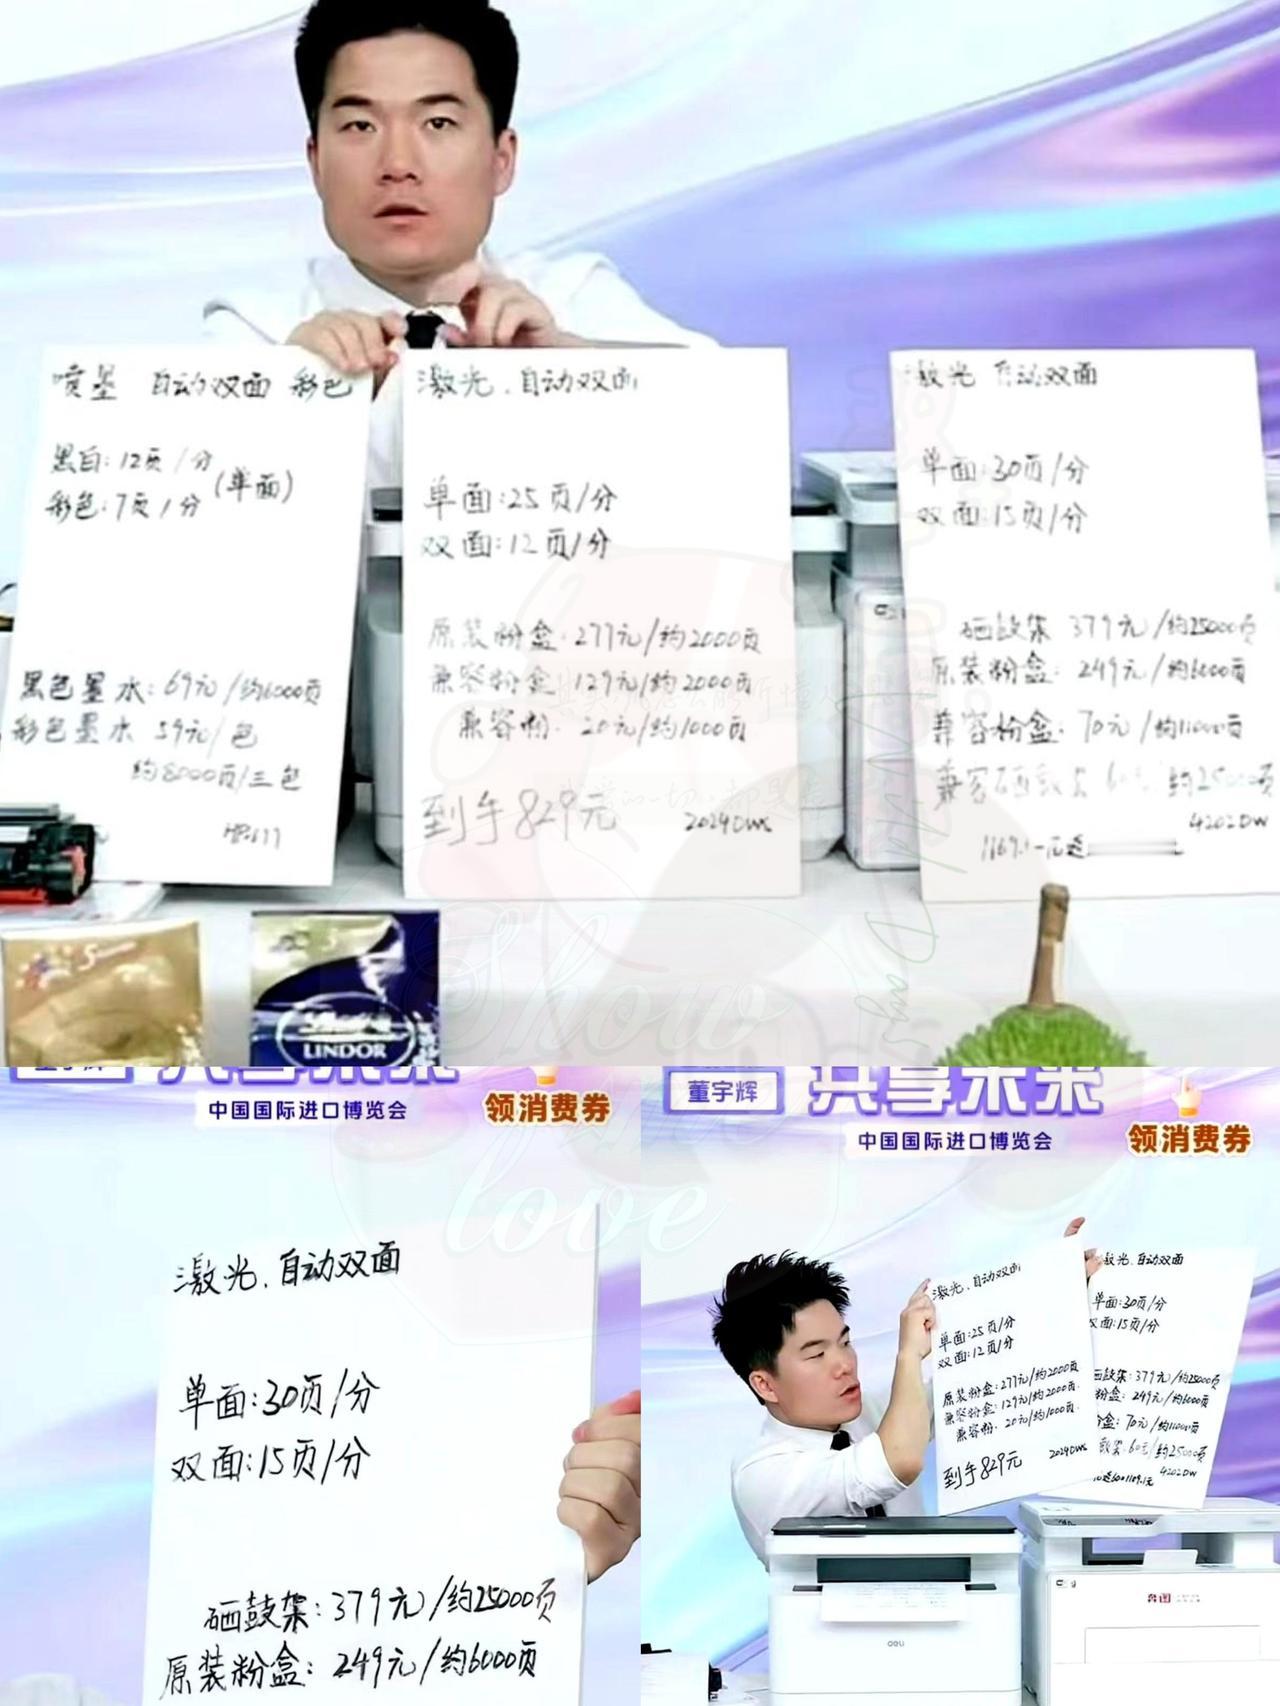 喷墨 自动双面 彩色
黑白:12页/分
彩色:7页/分
(单面)
黑色墨水:69元/约6000页
彩色墨水 59元/包
约8000页/三包
激光.自动双面
单面:25页/分
双面:12页/分
原装粉盒:277元/约2000页
兼容粉盒 129元/约2000页
兼容粉:20元/约1000页
到手829元
2029DWS
激光 自动双面
单面:30页/分
双面:15页/分
硒鼓架 379元/约25000页
原装粉盒:249元/约6000页
兼容粉盒:70元/约11000页
4202DW
LINDOR
Show
love
中国国际进口博览会
领消费券
激光.自动双面
单面:30页/分
双面:15页/分
硒鼓架:379元/约25000页
原装粉盒:249元/约6000页
董宇辉
共享未来
中国国际进口博览会
领消费券
激光.自动双面
单面:25页/分
双面:12页/分
原装粉盒:277元/约2000页
兼容粉盒:129元/约2000页
兼容粉:20元/约1000页
到手829元
2029DWS
激光.自动双面
单面:30页/分
双面:15页/分
硒鼓架:379元/约25000页
粉盒:249元/约6000页
粉盒:70元/约11000页
鼓架:60元/约25000页
4202DW
deli
奔图